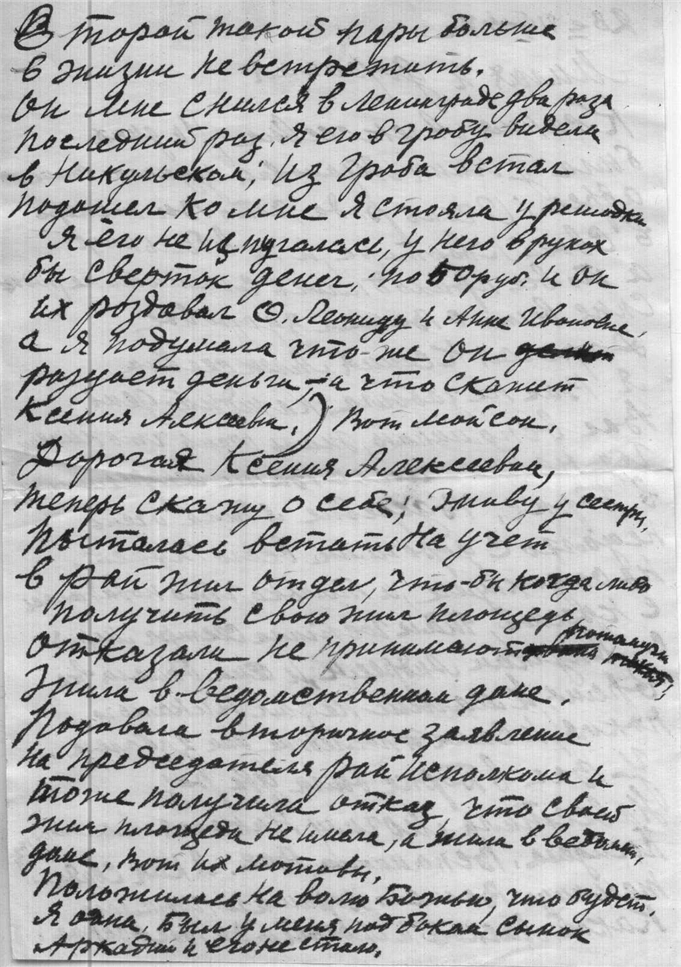 Второй такой пары больше
в жизни не встретить.
Он мне снился в Ленинграде два раза
последний раз. Я его в гробу видела
в Никульском, из гроба встал
подошел ко мне я стояла у решодки
я его не испугалась, у него в руках
бы сверток денег, по 50 руб. и он
их роздавал О. Леониду и Анне Ивановне,
а я подумала что-же он
раздает деньги, — а что скажет
Ксения Алексеевн.) Вот мой сон.
Дорогая Ксения Алексеевна,
теперь скажу о себе; живу у сестры,
пыталась встать на учет
в рай жил отдел, что-бы когда либо
получить свою жил площедь
отказали не принимают потому что
жила в ведомственном даме.
Подовала вторичное заявление
на председателя райисполкома и
тоже получила отказ, что своей
жил площеди не имела, а жила в ведомст.
даме, вот их мотовы.
Положилась на волю Божью, что будет.
Я одна, был у меня под бокам сынок
Аркадий и его не стало.